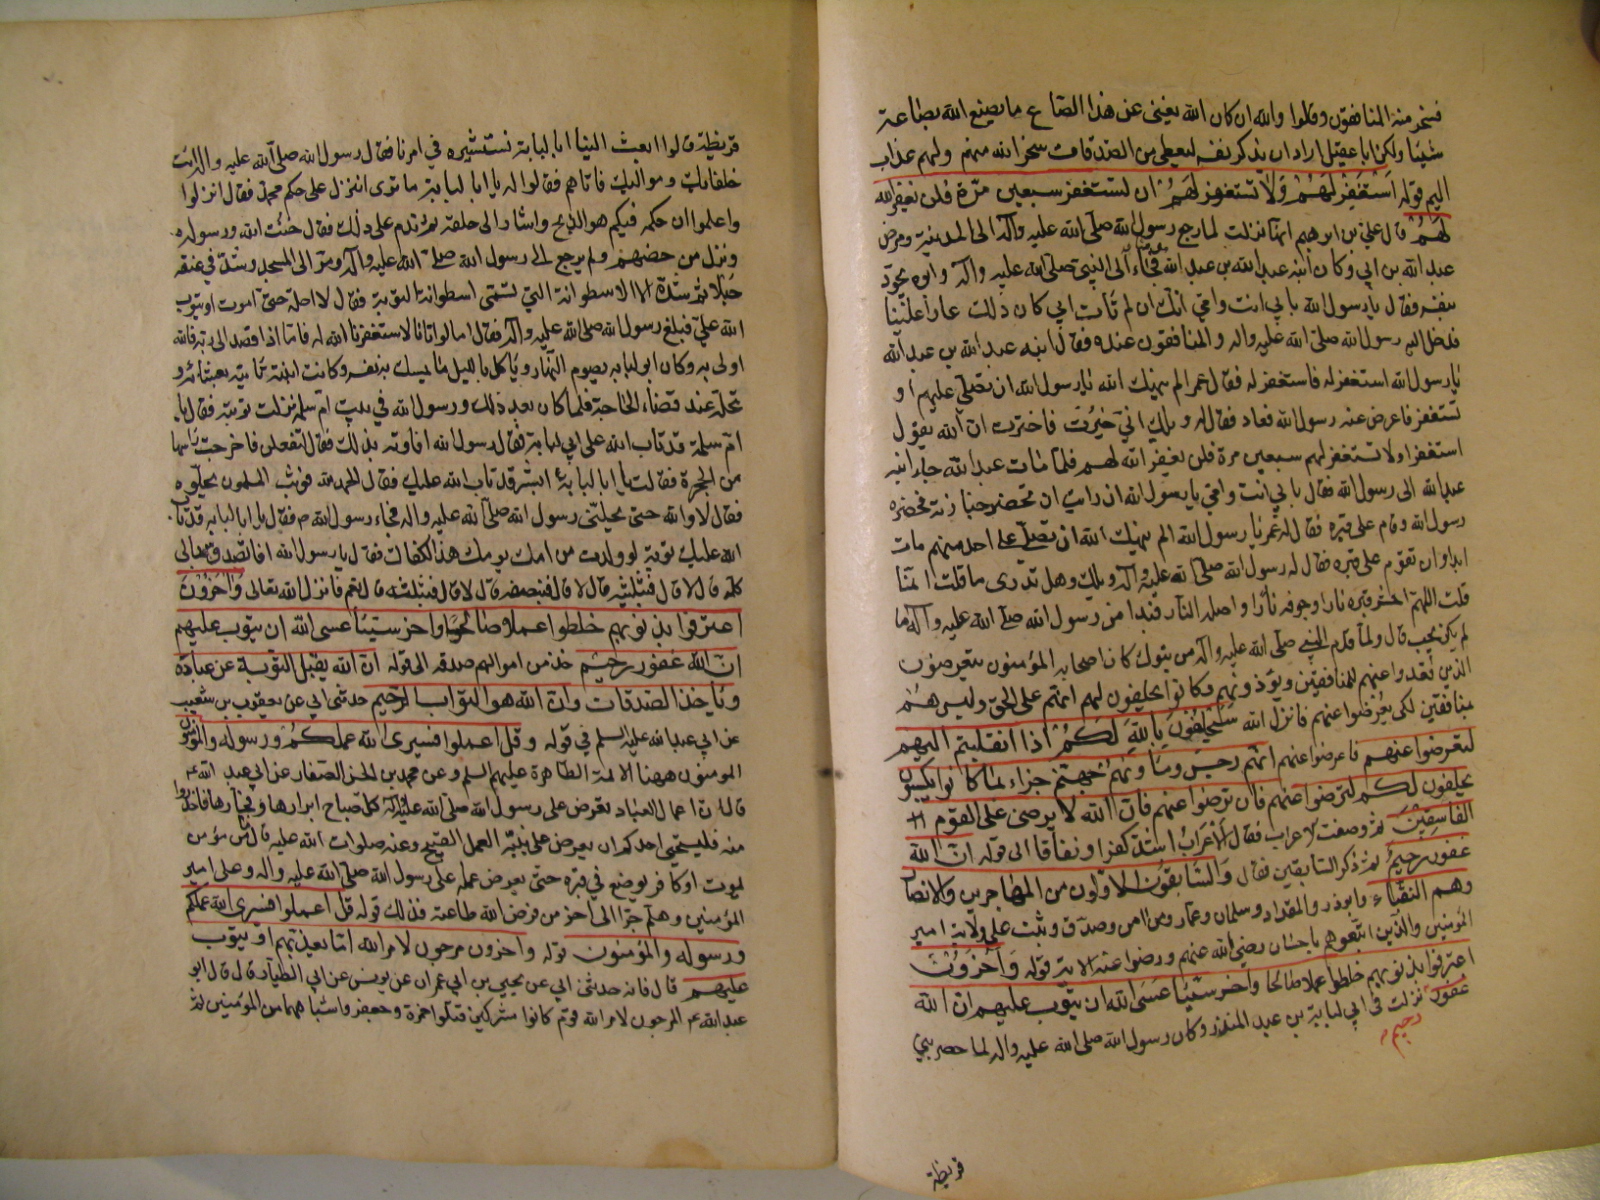 فسخر منه المنافقون وقالوا والله ان كان الله يغنى عن هذا الصاع ما يصنع الله بصاعه
شيئا ولكن ابا عقيل اراد ان يذكر نفسه ليعطى من الصدقات سخر الله منهم ولهم عذاب
اليم قوله اسْتَغْفِرْ لَهُمْ وَلَا تستغفر لَهُمْ ان تستغفر سبعين مرّة فلن يغفر الله
لَهُمْ قال علي بن ابرهيم انها نزلت لما رجع رسول الله صلى الله عليه وآله الى المدينة ومرض
عبد الله بن ابي وكان ابنه عبد الله بن عبد الله فجاء الى النبي صلى الله عليه وآله وابوه يجود
بنفسه فقال يا رسول الله بابي انت وامي انك ان لم تات ابي كان ذلك عارا علينا
فدخل اليه رسول الله صلى الله عليه واله والمنافقون عنده فقال ابنه عبد الله بن عبد الله
يا رسول الله استغفر له فاستغفر له فقال عمر الم ينهك الله يا رسول الله ان تصلي عليهم او
تستغفر فاعرض عنه رسول الله فعاد فقال له ويلك اني خيّرت فاخترت ان الله يقول
استغفر او لا تستغفر لهم سبعين مرة فلن يغفر الله لهم فلما مات عبد الله جاء ابنه
عبد الله الى رسول الله فقال بابي انت وامي يا رسول الله ان رايت ان تحضر جنازته فحضره
رسول الله وقام على قبره فقال له عمر يا رسول الله الم ينهك الله ان تصلّي على احد منهم مات
ابدا وان تقوم على قبره فقال له رسول الله صلى الله عليه وآله ويلك وهل تدرى ما قلت انما
قلت اللهمّ احش قبره نارا وجوفه نارا واصله النار فبدا من رسول الله صلى الله عليه وآله ما
لم يكن يحب قال ولما قدم النبي صلى الله عليه وآله من تبوك كان اصحابه المؤمنون يتعرضون
الذين قعدوا عنهم للمنافقين ويؤذونهم وكانوا يحلفون لهم انهم على الحق وليس هم
منافقين لكى يعرضوا عنهم فانزل الله سَيَحْلِفُونَ بِاللهِ لَكُمْ اذا انقلبتم اليهم
لتعرضوا عنهم فاعرضوا عنهم انهم رجس ومأونهم جهنم جزاء بما كانوا يكسبون
يحلفون لكم لترضوا عنهم فان ترضوا عنهم فان الله لا يرضى على القوم
الفاسقين ثم وصفت الاعراب فقال الْاَعْرَابُ اشد كفرا ونفاقا الى قوله ان الله
غفور رحيم ثم ذكر السابقين فقال وَالسّابقون الاوّلون من المهاجرين والانصار
وهم النقباء وابوذر والمقداد وسلمان وعمار ومن امن وصدّق وثبت على ولاية امير
المؤمنين والذين اتبعوهم باحسان رضي الله عنهم ورضوا عنه الاية قوله وَآخَرُونَ
اعترفوا بذنوبهم خلطوا عملا صالحا وآخر سيّئا عَسَى الله ان يتوب عليهم ان الله
غفور رحيم نزلت في ابي لبابة بن عبد المنذر وكان رسول الله صلى الله عليه واله لما حصر بني
قريظة
قريظة قالوا ابعث الينا ابا لبابة نستشيره في امرنا فقال رسول الله صلى الله عليه واله ائت
خلفاءك ومواليك فاتاهم فقالوا له يا ابا لبابة ما ترى اننزل على حكم محمد فقال انزلوا
واعلموا ان حكمه فيكم هو الذبح واشار الى حلقه ثم ندم على ذلك فقال خنت الله ورسوله
ونزل من حصنهم ولم يرجع الى رسول الله صلى الله عليه وآله ومرّ الى المسجد وشدّ في عنقه
حبلا ثم شدّه الى الاسطوانة التي تسمى اسطوانة التوبة فقال لا احله حتى اموت او يتوب
الله عليّ فبلغ رسول الله صلى الله عليه وآله فقال اما لو اتانا لاستغفرنا الله له فاما اذا قصد الى ربه فالله
اولى به وكان ابو لبابه يصوم النهار وياكل بالليل ما يمسك به نفسه وكانت ابنته تاتيه بعشائه و
تحله عند قضاء الحاجة فلما كان بعد ذلك ورسول الله في بيت ام سلمة نزلت توبته فقال يا
ام سلمة قد تاب الله على ابي لبابة فقال رسول الله افاوذنه بذلك فقال لتفعلن فاخرجت راسها
من الحجرة فقالت يا ابا لبابة ابشر قد تاب الله عليك فقال الحمد لله فوثب المسلمون يحلّوه
فقال لا والله حتى يحلّنى رسول الله صلى الله عليه واله فجاء رسول الله ص فقال يا ابا لبابه قد تاب
الله عليك توبة لو ولدت من امك يومك هذا لكفاك فقال يا رسول الله افاتصدق بمالى
كله قال لا قال فبثلثيه قال لا قال فبنصفه قال لا قال فبثلثه قال نعم فانزل الله تعالى وَآخَرُونَ
اعترفوا بذنوبهم خلطوا عملا وصالحا واخر سيّئا عسى الله ان يتوب عليهم
ان الله غفور رحيم خذ من اموالهم صدقه الى قوله ان الله يقبل التوبة عن عباده
وياخذ الصدقات وان الله هو التواب الرحيم حدثنى ابي عن يعقوب بن شعيب
عن ابي عبد الله عليه السلم في قوله وقل اعملوا فسيرى الله عملكم ورسوله والمؤمنون
المومنون ههنا الائمة الطاهرة عليهم السلم وعن محمد بن الحسن الصفار عن ابي عبد الله ع
قال ان اعمال العباد تعرض على رسول الله صلى الله عليه وآله كل صباح ابرارها وفجارها فاحذروا
منه فليستحيى احدكم ان يعرض على نبيّه العمل القبيح وعنه صلوات الله عليه قال ما من مؤمن
يموت او كافر يوضع في قبره حتى يعرض عمله على رسول الله صلى الله عليه واله وعلى امير
المؤمنين وهلم جرّا الى آخر من فرض الله طاعته فذلك قوله قل اعملوا فسيرى الله عملكم
ورسوله والمؤمنون قوله وآخرون مرجون لامر الله اما يعذبهم او يتوب
عليهم قال فانه حدثنى ابي عن يحيى بن ابي عمران عن يونس عن ابي الطيار قال قال ابو
عبد الله ع المرجون لامر الله قوم كانوا مشركين قتلوا حمزة وجعفر واشباههما من المؤمنين ثم